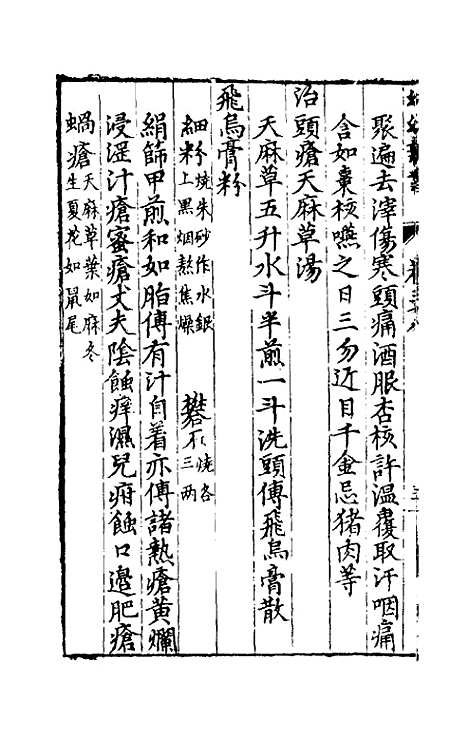 聚遍去滓傷寒頭痛酒服杏核許温覆取汗咽痛
含如棗核嚥之日三勿近目千金忌猪肉等
治頭瘡天麻草湯
天麻草五升水斗半煎一斗洗頭傅飛烏膏散
飛烏膏粉
細粉燒朱砂作水銀上黑烟熬焦燥 礬石燒各三两
絹篩甲煎和如脂傅有汁自着亦傅諸熱瘡黄爛
浸淫汁瘡蜜瘡丈夫陰蝕痒濕兒疳蝕口邉肥瘡
蝸瘡天麻草葉如麻冬生夏花如鼠尾